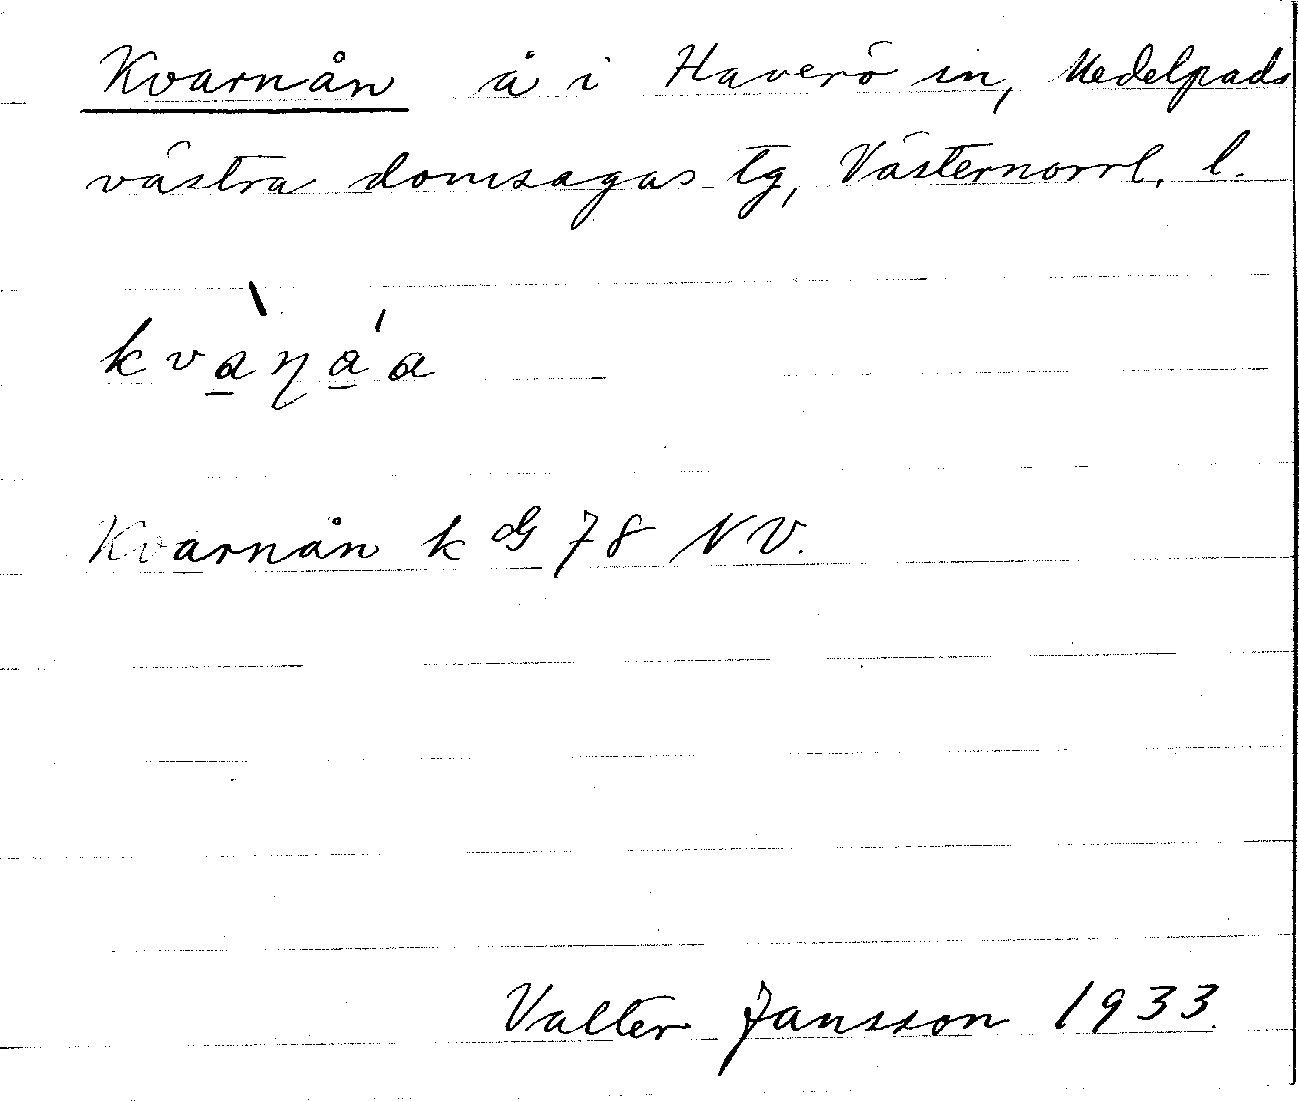 Kvarnån å i Haverö sn, Medelpads
västra domsagas tg, Västernorrl. l.
kvaṇáa
Kvarnån k G 78 NV.
Valter Jansson 1933.